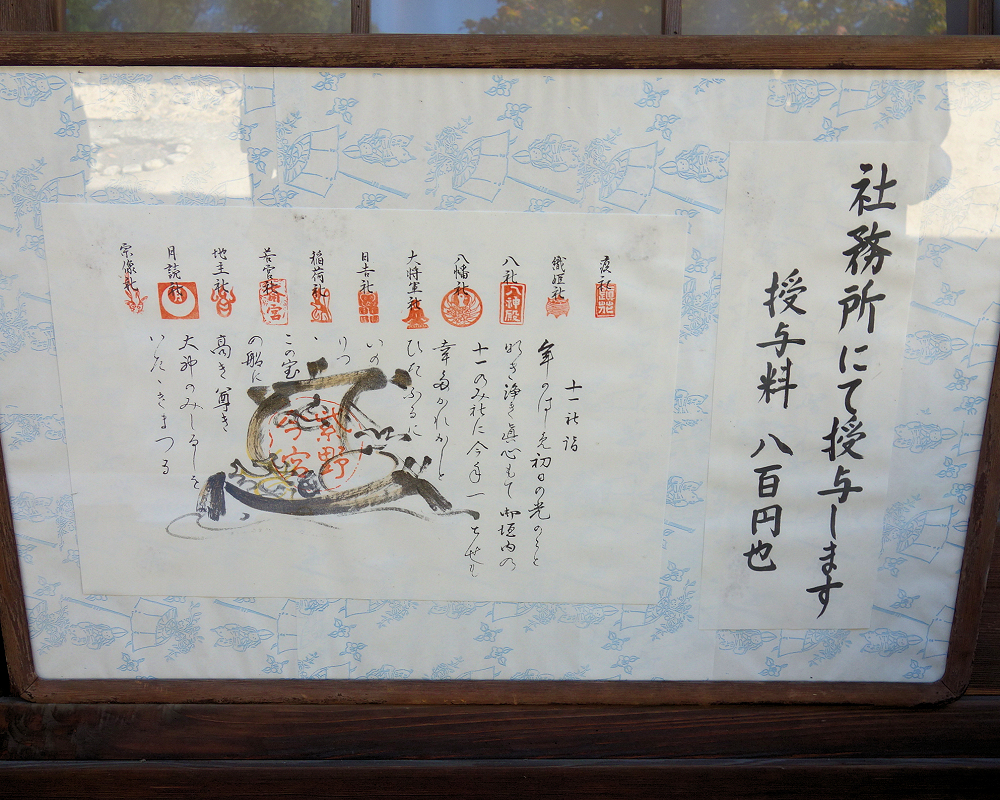 社務所にて授与します
授与料 八百円也
疫社
織姫社
八社
八幡社
大将軍社
日吉社
稲荷社
若宮社
地主社
月読社
宗像社
八神殿
若宮
十一社詣
年のはじめ初日の光のごと
明き浄き真心もて 御垣内の
十一のみ社に今年一とせも
幸多かれかしと
ひたぶるに
いの
りつ
この宝
の船に
高き尊き
大神のみしるしを
いたゞきまつる
紫野
今宮